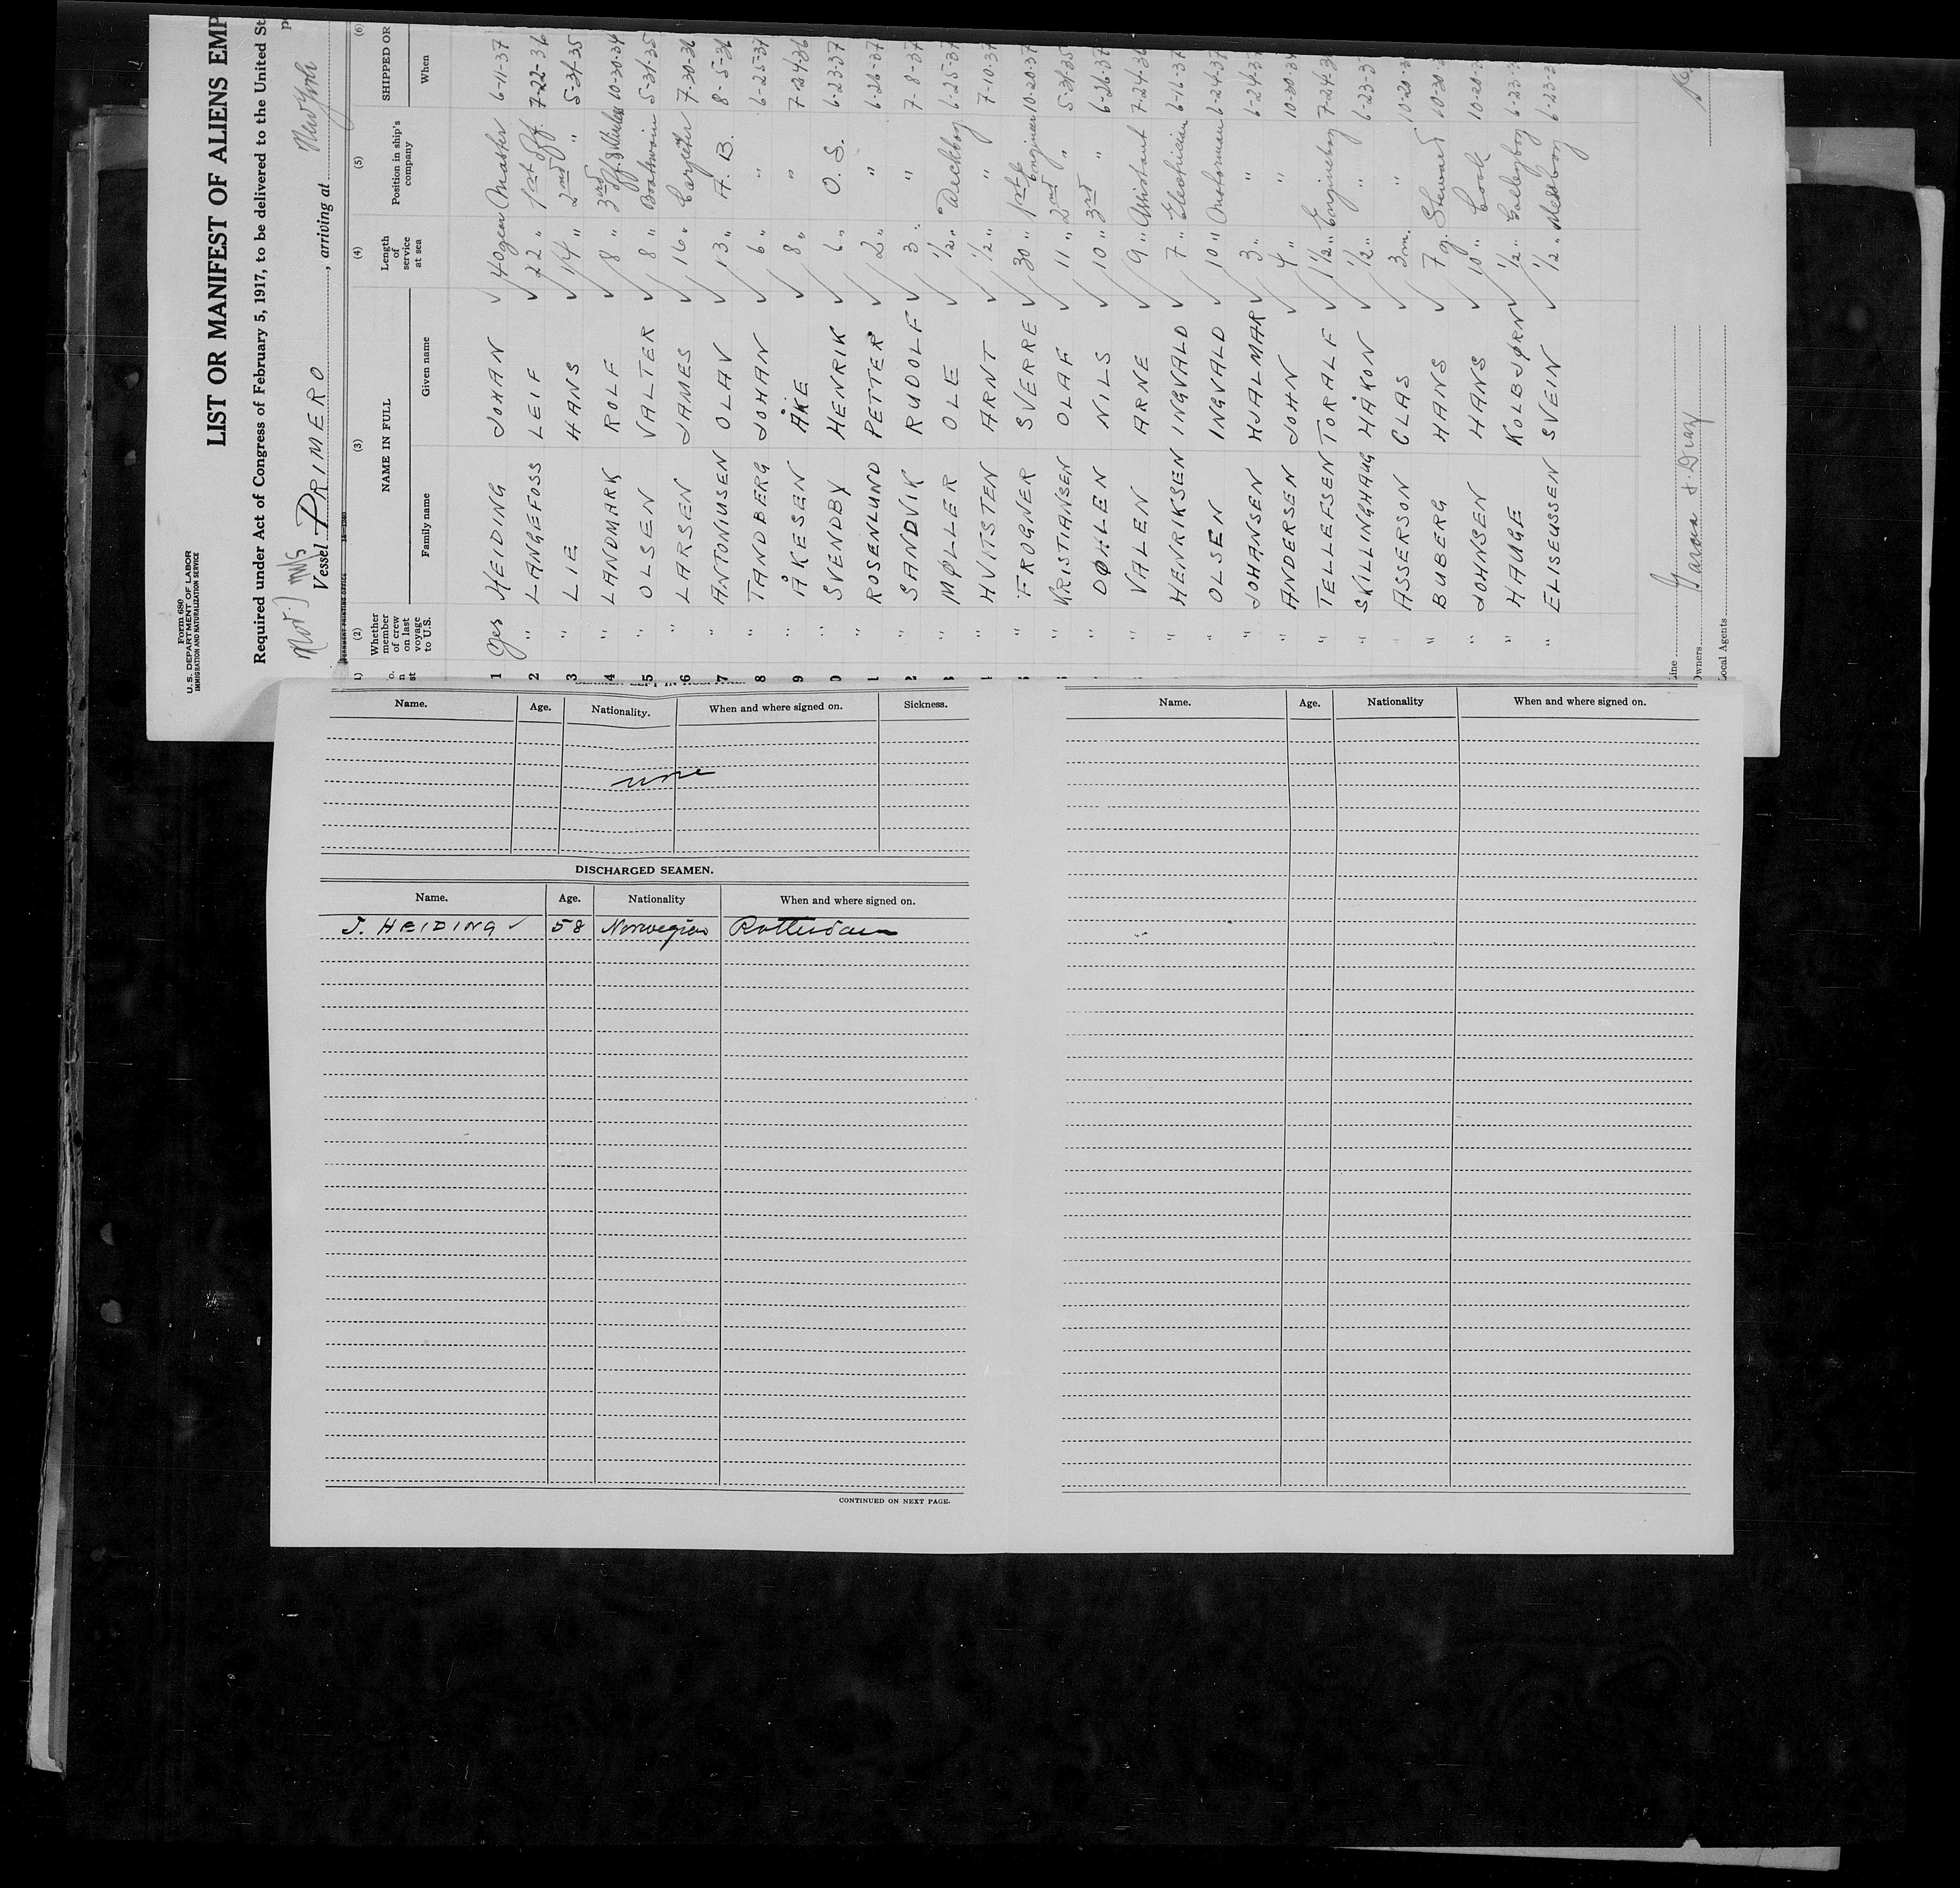 Form 680
U. S. DEPARTMENT OF LABOR
IMMIGRATION AND NATURALIZATION SERVICE
LIST OR MANIFEST OF ALIENS EMP
Required under Act of Congress of February 5, 1917, to be delivered to the United St
Vessel PRIMERO, arriving at New York
(2) (3) (4) (5) (6)
Whether member of crew on last voyage to U.S. NAME IN FULL Length of service at sea Position in ship's company SHIPPED OR
Family name Given name When
1 Yes HEIDING JOHAN ✓ 40 years Master 6-11-37
2 " LANGEFOSS LEIF ✓ 22 " 1st Off. 7-22-36
3 " LIE HANS ✓ 14 " 2nd " 5-31-35
4 " LANDMARK ROLF ✓ 8 " 3rd Off. 10-30-34
5 " OLSEN VALTER ✓ 8 " Boatswain 5-31-35
6 " LARSEN JAMES ✓ 16 " Carpenter 7-30-36
7 " ANTONIUSEN OLAV ✓ 13 " A. B. 8-5-36
8 " TANDBERG JOHAN ✓ 6 " " 6-25-37
9 " ÅKESEN ÅKE ✓ 8 " " 7-24-36
0 " SVENDBY HENRIK ✓ 6 " O. S. 6-23-37
1 " ROSENLUND PETTER ✓ 2 " " 6-26-37
2 " SANDVIK RUDOLF ✓ 3 " " 7-8-37
3 " MØLLER OLE ✓ ½ " Deckboy 6-25-37
4 " HVITSTEN ARNT ✓ ½ " " 7-10-37
5 " FROGNER SVERRE ✓ 30 " 1st Engineer 10-20-37
6 " KRISTIANSEN OLAF ✓ 11 " 2nd " 5-31-35
" DØHLEN NILS ✓ 10 " 3rd " 6-26-37
" VALEN ARNE ✓ 9 " Assistant 7-24-36
" HENRIKSEN INGVALD ✓ 7 " Electrician 6-16-37
" OLSEN INGVALD ✓ 10 " Motorman 6-24-37
" JOHANSEN HJALMAR ✓ 3 " " 6-24-3
" ANDERSEN JOHN ✓ 4 " " 10-30-34
" TELLEFSEN TORALF ✓ 1½ " Engineboy 7-24-3
" SKILLINGHAUG HÅKON ✓ ½ " " 6-23-3
" ASSERSON CLAS ✓ 3 m. " 10-20-3
" BUBERG HANS ✓ 7 y. Steward 10-30-3
" JOHNSEN HANS ✓ 10 " Cook 10-20-3
" HAUGE KOLBJØRN ✓ ½ " Galleyboy 6-23-3
" ELISEUSSEN SVEIN ✓ ½ " Messboy 6-23-3
Line
Owners Garcia & Diaz
Local Agents
Name. Age. Nationality. When and where signed on. Sickness.
none
DISCHARGED SEAMEN.
Name. Age. Nationality When and where signed on.
J. HEIDING ✓ 58 Norwegian Rotterdam
CONTINUED ON NEXT PAGE.
Name. Age. Nationality When and where signed on.